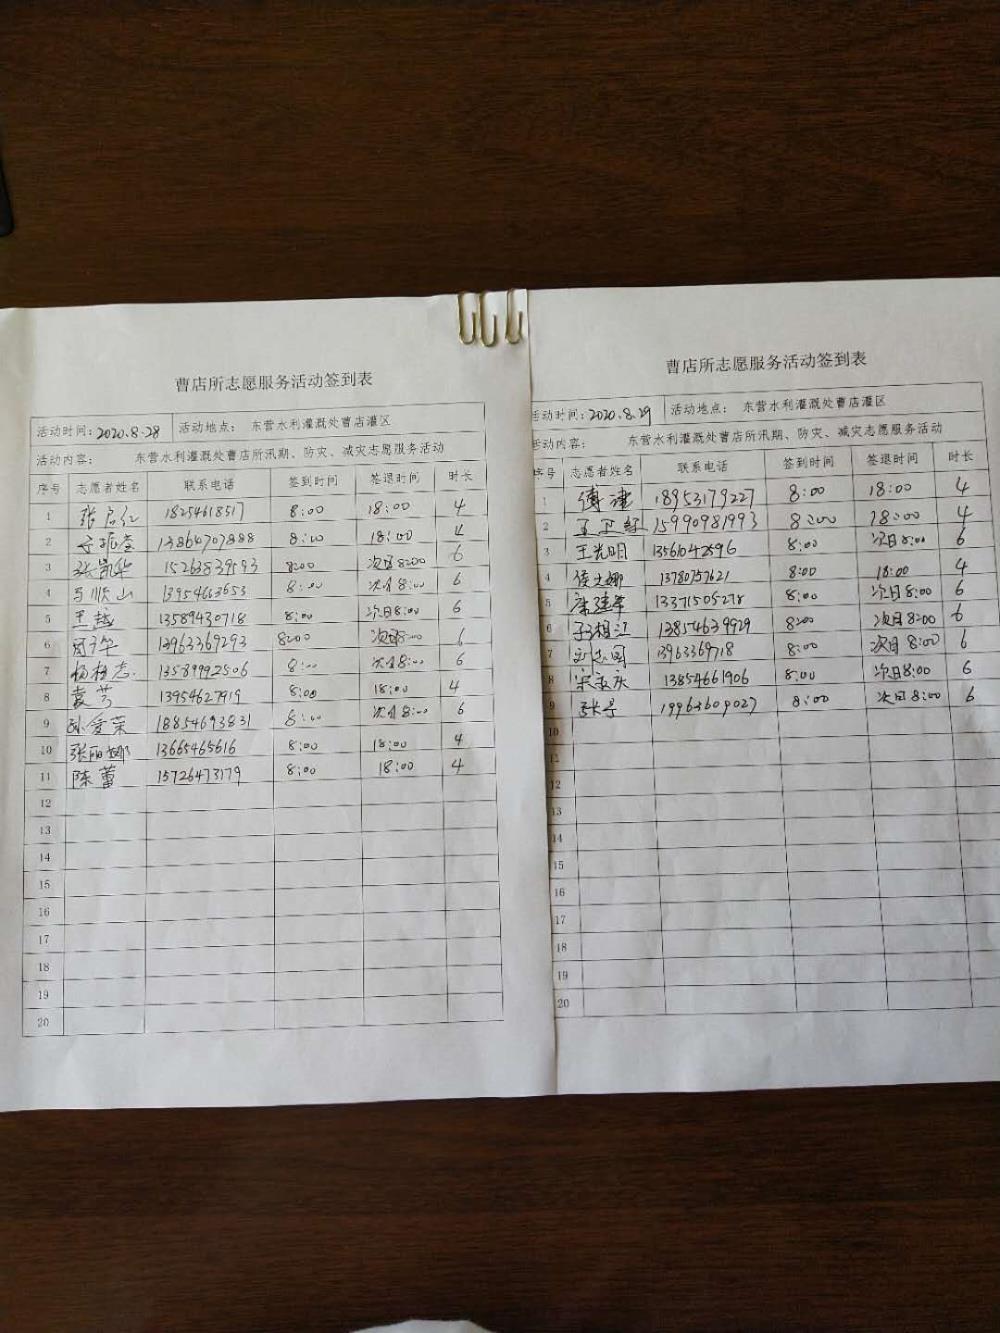 曹店所志愿服务活动签到表
活动时间：2020.8.28 活动地点： 东营水利灌溉处曹店灌区
活动内容： 东营水利灌溉处曹店所汛期、防灾、减灾志愿服务活动
序号 志愿者姓名 联系电话 签到时间 签退时间 时长
1 18254618517 8:00 18:00 4
2 13864707888 8:00 18:00 4
3 张凯华 15263839593 8:00 次日8:00 6
4 马顺山 13954663653 8:00 次日8:00 6
5 王越 13589430718 8:00 次日8:00 6
6 13963369293 8:00 次日8:00 6
7 杨相志 13589992506 8:00 次日8:00 6
8 袁芳 13954627919 8:00 18:00 4
9 孙爱荣 18854693831 8:00 次日8:00 6
10 张丽娜 13665465616 8:00 18:00 4
11 陈蕾 15726473179 8:00 18:00 4
12
13
14
15
16
17
18
19
20
曹店所志愿服务活动签到表
活动时间：2020.8.29 活动地点： 东营水利灌溉处曹店灌区
活动内容： 东营水利灌溉处曹店所汛期、防灾、减灾志愿服务活动
序号 志愿者姓名 联系电话 签到时间 签退时间 时长
1 傅建 18953179227 8:00 18:00 4
2 王卫红 15990981993 8:00 18:00 4
3 王光明 13561042596 8:00 次日8:00 6
4 侯文娜 13780757621 8:00 18:00 4
5 13371505278 8:00 次日8:00 6
6 13854639929 8:00 次日8:00 6
7 13963369718 8:00 次日8:00 6
8 13854661906 8:00 次日8:00 6
9 19963609027 8:00 次日8:00 6
10
11
12
13
14
15
16
17
18
19
20